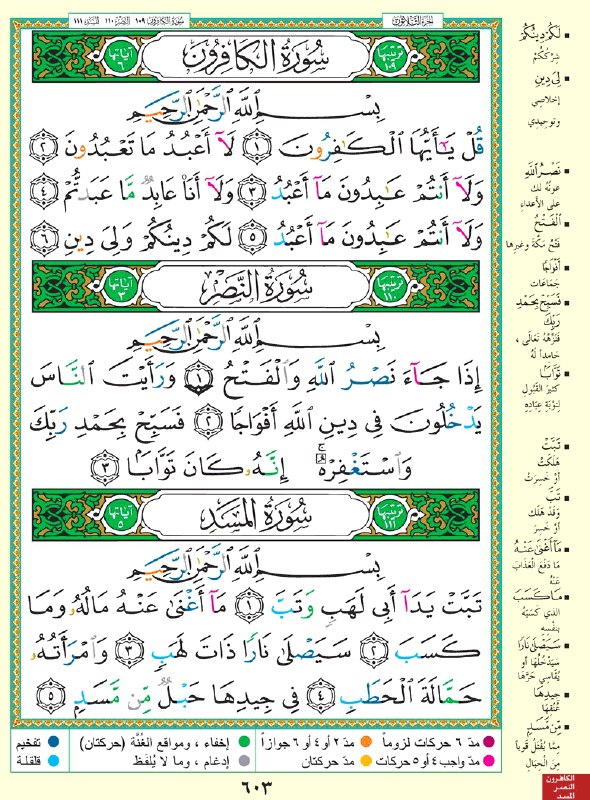 سُورَةُ الكافِرُون ١٠٩ النَّصْر ١١٠ المَسَد ١١١
الجزء الثلاثون
آياتها ٦ سُورَةُ الكَافِرُونَ ترتيبها ١٠٩
بِسْمِ اللَّهِ الرَّحْمَٰنِ الرَّحِيمِ
قُلْ يَٰٓأَيُّهَا ٱلْكَٰفِرُونَ ١ لَآ أَعْبُدُ مَا تَعْبُدُونَ ٢
وَلَآ أَنتُمْ عَٰبِدُونَ مَآ أَعْبُدُ ٣ وَلَآ أَنَا۠ عَابِدٌ مَّا عَبَدتُّمْ ٤
وَلَآ أَنتُمْ عَٰبِدُونَ مَآ أَعْبُدُ ٥ لَكُمْ دِينُكُمْ وَلِىَ دِينِ ٦
آياتها ٣ سُورَةُ النَّصْر ترتيبها ١١٠
بِسْمِ اللَّهِ الرَّحْمَٰنِ الرَّحِيمِ
إِذَا جَآءَ نَصْرُ ٱللَّهِ وَٱلْفَتْحُ ١ وَرَأَيْتَ ٱلنَّاسَ
يَدْخُلُونَ فِى دِينِ ٱللَّهِ أَفْوَاجًا ٢ فَسَبِّحْ بِحَمْدِ رَبِّكَ
وَٱسْتَغْفِرْهُ ۚ إِنَّهُۥ كَانَ تَوَّابًۢا ٣
آياتها ٥ سُورَةُ المَسَد ترتيبها ١١١
بِسْمِ اللَّهِ الرَّحْمَٰنِ الرَّحِيمِ
تَبَّتْ يَدَآ أَبِى لَهَبٍ وَتَبَّ ١ مَآ أَغْنَىٰ عَنْهُ مَالُهُۥ وَمَا
كَسَبَ ٢ سَيَصْلَىٰ نَارًا ذَاتَ لَهَبٍ ٣ وَٱمْرَأَتُهُۥ
حَمَّالَةَ ٱلْحَطَبِ ٤ فِى جِيدِهَا حَبْلٌ مِّن مَّسَدٍۭ ٥
لَكُمْ دِينُكُمْ
شِرْكُكُمْ
لِيَ دِينِ
إخلاصي
وتوحيدي
نَصْرُ اللهِ
عونُه لك
على الأعداءِ
الْفَتْحُ
فَتْحُ مَكَّةَ وغيرِها
أَفْوَاجًا
جماعات
فَسَبِّحْ بِحَمْدِ
رَبِّكَ
فَنَزِّهْهُ تَعَالَى ،
حامداً لَهُ
تَوَّابًا
كثيرَ القَبُولِ
لتوبةِ عبادِه
تَبَّتْ
هَلَكَتْ
أوْ خَسِرَتْ
تَبَّ
وقَدْ هَلَكَ
أوْ خَسِرَ
مَا أَغْنَى عَنْهُ
مَا دَفَعَ العَذَابَ
عَنْهُ
مَا كَسَبَ
الذي كَسَبَهُ
بِنَفْسِهِ
سَيَصْلَى نَارًا
سَيَدْخُلُها أو
يُقَاسِي حَرَّهَا
جِيدِهَا
عُنُقِهَا
مِّن مَّسَدٍ
مِمَّا يُفْتَلُ قَوِيّاً
مِنَ الحِبَالِ
مدّ ٦ حركات لزوماً مدّ ٢ أو ٤ أو ٦ جوازاً إخفاء، ومواقع الغُنَّة (حركتان) تفخيم
مدّ واجب ٤ أو ٥ حركات مدّ حركتان إدغام، وما لا يُلفَظ قلقلة
٦٠٣
الكافرون
النصر
المسد